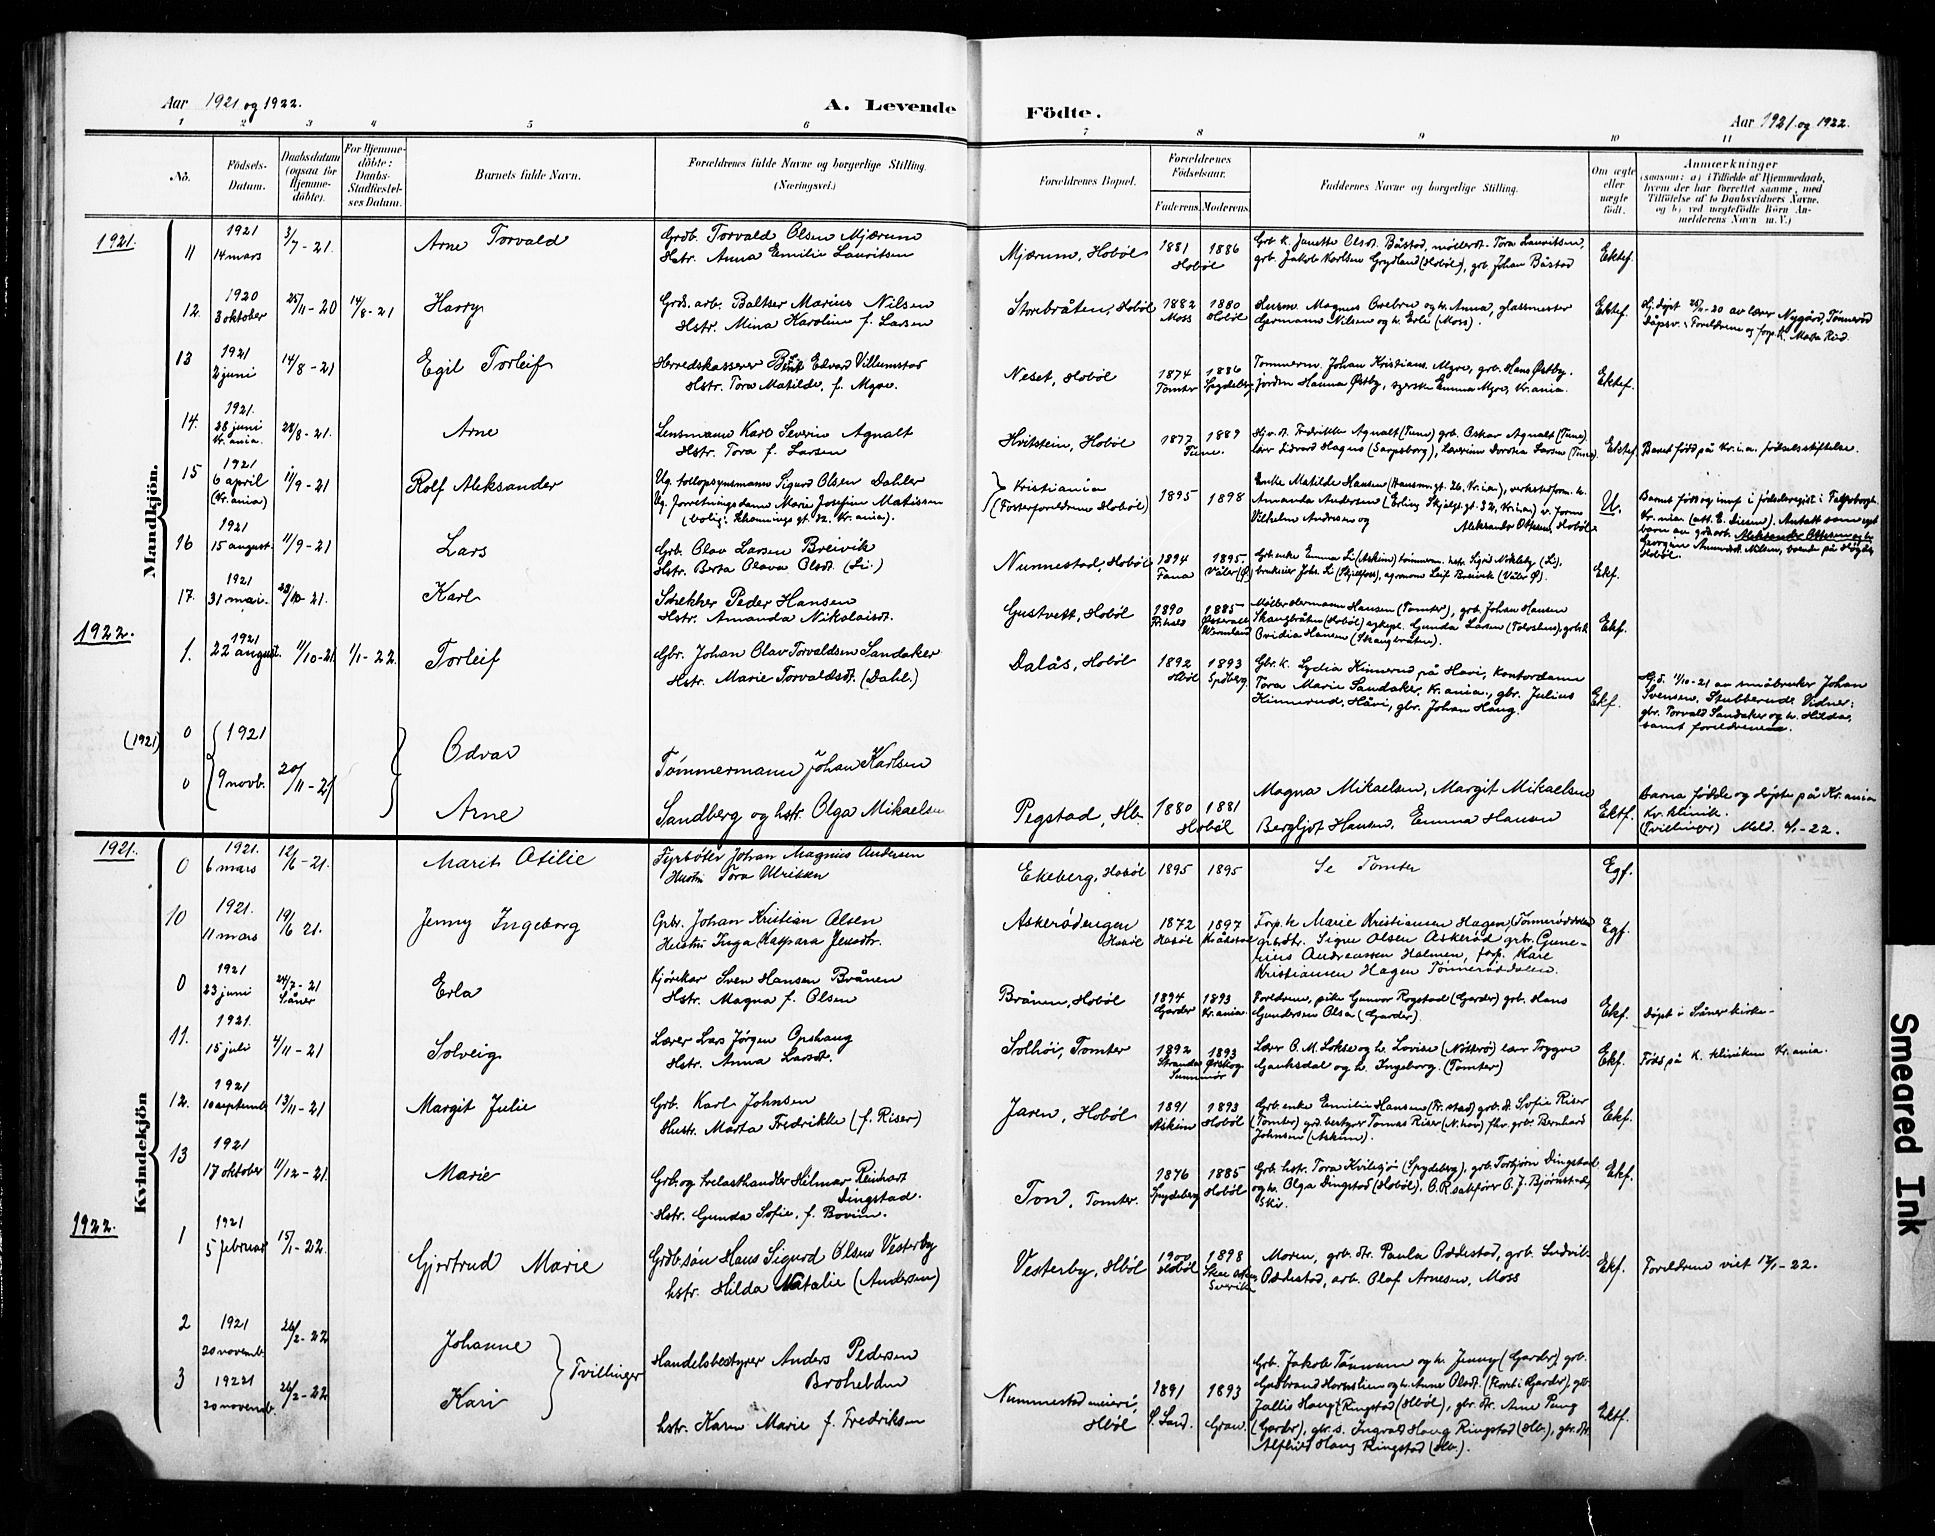 Aar 1921 og 1922.
A. Levende Födte.
Aar 1921 og 1922.
1 2 3 4 5 6 7 8 9 10 11
No.
Födsels-Datum.
Daabsdatum (ogsaa for Hjemme-döbte).
For Hjemme-döbte: Daabs-Stadfæstel-ses Datum.
Barnets fulde Navn.
Forældrenes fulde Navne og borgerlige Stilling. (Næringsvei.)
Forældrenes Bopæl.
Forældrenes Födselsaar.
Faderens. Moderens.
Faddernes Navne og borgerlige Stilling.
Om ægte eller uægte födt.
Anmærkninger
(saasom: a) i Tilfælde af Hjemmedaab,
hvem der har forrettet samme, med
Tilföielse af to Daabsvidners Navne,
og b) ved uægtefödte Börn An-
melderens Navn m. V.)
Mandkjön.
1921.
11 1921 14 mars 3/7-21. Arne Torvald
Grdb. Torvald Olsen Mjærum
Hstr. Anna Emilie Lauritsen
Mjærum, Hobøl 1881 1886 Hobøl
Grb. k. Janette Olsdt. Båstad, møllerdt. Tora Lauritsen,
grb. Jakob Karlsen Grydland (Hobøl), grb. Johan Båstad
Ektef.
12. 1920 3 oktober 25/11-20 14/8-21 Harry
Grds. arb. Baltser Marius Nilsen
Hstr. Mina Karoline f. Larsen
Storebråten, Hobøl 1882 Moss 1880 Hobøl
Herm. Magnus Orebro og h. Anna, glassmester
Hermann Nilsen og h. Erli (Moss).
Ektef.
Hj. døpt 25/11-20 av lærer Nygård, Tønnerød
Dåpsv.: Foreldrene og forp. k. Matha Riid.
13 1921 2 juni 14/8-21 Egil Torleif
Herredskasserer Bent Edvard Villumstad
Hstr. Tora Matilde, f. Myre.
Neset, Hobøl 1874 Tomter 1886 Spydeberg
Tømmerm. Johan Kristians. Myre, grb. Hans Østby,
jorden Hanna Østby, syerske Emma Myre, Kr.ania.
Ektef.
14. 1921. 28 juni Kr.ania. 28/8-21. Arne
Lensmann Karl Severin Agnalt
Hstr. Tora f. Larsen
Hvitstein, Hobøl 1877 1889 Tune.
Hjv. st. Fredrikke Agnalt (Tune) grb. Oskar Agnalt (Tune)
lærer Sidvard Hagen (Sarpsborg), lærerinne Dorothea Larsen (Tune).
Ektef.
Barnet född på Kr.i.a. fødselsstiftelse.
15 1921 6 april (Kr.ania) 11/9-21 Rolf Aleksander
Ug. tollopsynsmann Sigurd Olsen Dahler
Ug. forretningsdame Marie Josefine Matissen
(bolig: Schannings gt. 12. Kr.ania).
Kristiania
(Fosterforeldrene Hobøl) 1895 1898
Enke Matilde Hansen (Hansm. gt. 26, Kr.ia), verkstedform. h.
Amanda Andersen (Erling Skjalgs. gt. 32, Kr.ia) v. form.
Vilhelm Andersen og
Aleksander Ottesen, Hobøl.
U.
Hobøl.
16 1921 15 august. 11/9-21 Lars
Grb. Olav Larsen Breivik
Hstr. Berta Olava Olsdt. (Li.)
Nunnestad, Hobøl 1894 Fana 1895. Våler (Ø)
Grb. enke Emma Li (Askim) tømmerm. hstr. Sigrid Nökleby (Li),
brukseier Johs. Li (Skjelfoss), agronom Leif Breivik (Våler Ø).
Ekf.
17. 1921 31 mai. 23/10-21. Karl
Snekker Peder Hansen
Hstr. Amanda Nikolaisdt.
Gustvett, Hobøl 1890 1885 Wermland
Møller Hermann Hansen (Tomter), grb. Johan Hansen
Ovidia Hansen (Skaugbråten).
Ekf.
1922.
1. 1921 22 august. 11/10-21 1/1-22. Torleif
Gbr. Johan Olav Torvaldsen Sandaker
Hstr. Marie Torvaldsdt. (Dahl.)
Dalås, Hobøl 1892 Hobøl 1893 Spdberg.
Gbr. k. Lydia Kinnerud på Havi, kontordame
Tora Marie Sandaker, Kr.ania., gbr. Julius
Kinnerud, Håvi, gbr. Johan Haug.
Ekf.
Hj. d. 11/10-21 av småbruker Johan
Svensen, Stubberud. Vidner:
gbr. Torvald Sandaker og h. Hilda,
samt foreldrene.
(1921)
0 1921 Odvar
0 9 novb. 20/11-21 Arne
Tømmermann Johan Karlsen
Sandberg og hstr. Olga Mikaelsen
Pegstad, Hb. 1880 1881 Hobøl
Magna Mikaelsen, Margit Mikaelsen
Bergljot Hansen, Emma Hansen
Ektf.
Barna födde og døpte på Kr.ania
Kv. klinik.
(Tvillinger) Meld. 4/1-22.
Kvindekjön
1921.
0 1921. 6 mars 12/6-21. Marit Otilie
Fyrbøter Johan Magnus Andersen
Hustru Tora Ulrikken
Ekeberg, Hobøl 1895 1895 Se Tomter Egf.
10 1921. 11 mars 19/6 21. Jenny Ingeborg
Grbr. Johan Kristian Olsen
Hustru Inga Kaspara Jensdtr.
Askerødengen Hobøl 1872 Hobøl 1897 Kråkstad
Forp. h. Marie Kristiansen Hagen, (Tønnerøddalen
grbrdtr. Signe Olsen Askerød grbr. Gune-
rius Andreassen Holmen, forp. Kåre
Kristiansen Hagen Tønnerøddalen.
Egf.
0 1921 23 juni 24/7-21 Såner Erla
Kjørekar Sven Hansen Brånen
Hstr. Magna f. Olsen
Brånen, Hobøl 1894 Garder 1893 Kr.ania
Foreldrene, pike Gunvor Rogstad (Garder) grb. Hans
Gundersen Olsa (Garder).
Ekf. Døpt i Såner kirke-
11. 1921. 15 juli 4/11-21 Solveig
Lærer Lars Jørgen Opshaug
Hstr. Anna Larsdt.
Solhøi, Tomter 1892 Stranda 1893 Ørskog. Sunnmør
Lærer O. M. Lokse og h. Lovise (Nötterö) lærer Trygve
Gauksdal og h. Ingeborg. (Tomter)
Ekf. Föds på K. kliniken Kr.ania.
12. 1921 10 septemb. 13/11-21 Margit Julie
Grb. Karl Johnsen
Hustr. Marta Fredrikke (f. Riser)
Jaren, Hobøl 1891 Askim 1893 Hobøl
Grb. enke Emilie Hansen (Fr.stad) grb. dt. Sofie Riser
(Tomter) grd. bestyrer Tomas Riser (N. hov) fhv. grb. Bernhard
Johnsen (Askim).
Ekf.
13 1921 17 oktober 11/12-21. Marie
Grb. og trelasthandler Hilmar Reinhart
Dingstad.
Hstr. Gunda Sofie, f. Bovim.
Ton, Tomter. 1876 Spydeberg 1885 Hobøl
Grb. hstr. Tora Kvilesjø (Spydeberg), grb. Torbjørn Dingstad
og h. Olga Dingstad (Hobøl). O.R.sakfører O. J. Bjørnstad,
Ski.
Ekf.
1922.
1 1921 5 februar 15/1-22. Gjertrud Marie
Grdb. søn Hans Sigurd Olsen Vesterby
hstr. Hilda Natalie (Andersen)
Vesterby, Hbøl 1900 Hobøl 1898
Moren, grb. dtr. Paula Oddestad, grb. Ludvik
Oddestad, arb. Olaf Arnesen, Moss
Ekf. Foreldrene viet 13/1-22.
2 1921 20 novemb. 26/2-22 Johanne
3 1921 20 novemb. 26/2-22 Kari
Tvillinger
Handelsbestyrer Anders Pedersen
Broholden
hstr. Karen Marie f. Fredriksen
Nummestad meieri, Hbøl 1891 S. Land. 1893 Gran.
Grb. Jakob Tønnum og h. Jenny (Garder), grb.
Gudbrand Hornslien og h. Anne Olsdt. (Floret i Garder), gbr.
Jallis Haug (Ringstad (Hbøl), gbr. dtr. Anne Pung
(Garder), gbr. s. Ingvald Haug Ringstad (Hb.), gbr. dtr.
Alfhild Haug Ringstad (Hb.).
Ektf.
Smeared Ink